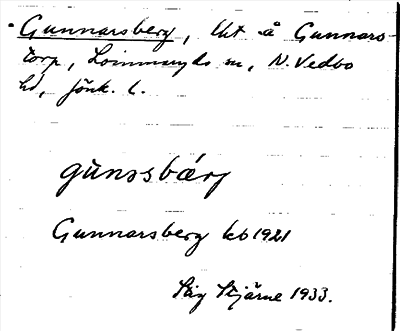 Gunnarsberg, lht å Gunnars-
torp, Lommaryds sn, N. Vedbo
hd, Jönk. l.
gùnəsbær̷j
Gunnarsberg kb 1921
Stig Stjärne 1933.